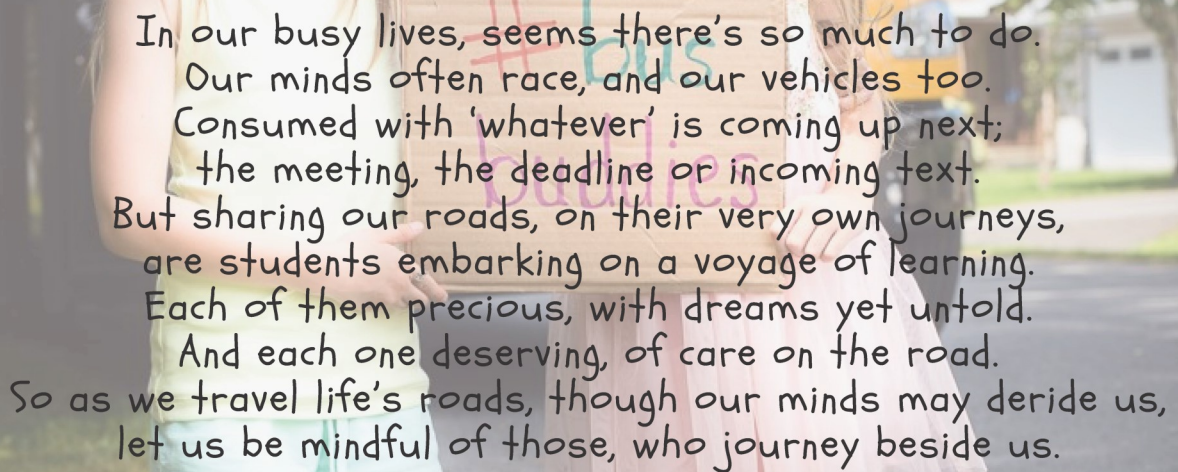 #bus
buddies
In our busy lives, seems there's so much to do.
Our minds often race, and our vehicles too.
Consumed with 'whatever' is coming up next;
the meeting, the deadline or incoming text.
But sharing our roads, on their very own journeys,
are students embarking on a voyage of learning.
Each of them precious, with dreams yet untold.
And each one deserving, of care on the road.
So as we travel life's roads, though our minds may deride us,
let us be mindful of those, who journey beside us.